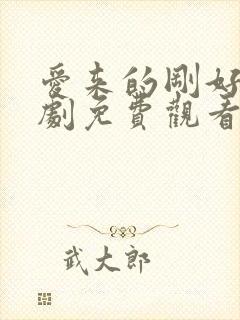 愛來的剛好
劇免費觀看
武大郎